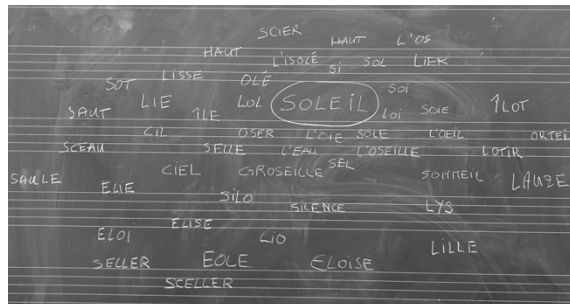 SCIER
HAUT HAUT L'OS
L'ISOLÉ SI SOL LIER
SOT LISSE OLÉ SOI
SAUT LIE ÎLE LOL SOLEIL LOI SOIE ÎLOT
CIL OSER L'OIE SOLE L'OEIL ORTEIL
SCEAU SELLE L'EAU SEL L'OSEILLE LOTIR
SAULE ELIE CIEL GROSEILLE SOMMEIL LAUZE
SILO SILENCE LYS
ELOI ELISE LIO LILLE
SELLER EOLE ELOISE
SCELLER